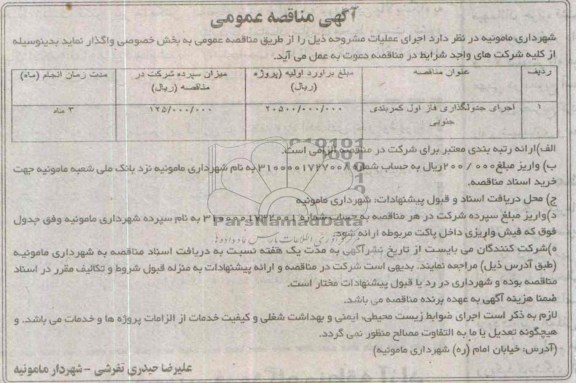 آگهی مناقصه عمومی
شهرداری مامونیه در نظر دارد اجرای عملیات مشروحه ذیل را از طریق مناقصه عمومی به بخش خصوصی واگذار نماید بدینوسیله
از کلیه شرکت های واجد شرایط در مناقصه دعوت به عمل می آید.
ردیف عنوان مناقصه مبلغ براورد اولیه (پروژه میزان سپرده شرکت در مدت زمان انجام (ماه)
(ریال) مناقصه (ریال)
۱ اجرای جدولگذاری فاز اول کمربندی ۲۰۵۰۰/۰۰۰/۰۰۰ ۱۲۵/۰۰۰/۰۰۰ ۳ ماه
جنوبی
الف)ارائه رتبه بندی معتبر برای شرکت در مناقصه الزامی است.
ب) واریز مبلغ ۲۰۰/۰۰۰ ریال به حساب شماره ۳۱۰۰۰۰۰۱۷۲۷۰۰۸ به نام شهرداری مامونیه نزد بانک ملی شعبه مامونیه جهت
خرید اسناد مناقصه.
ج) محل دریافت اسناد و قبول پیشنهادات: شهرداری مامونیه
د)واریز مبلغ سپرده شرکت در هر مناقصه به حساب شماره به نام سپرده شهرداری مامونیه وفق جدول
فوق که فیش واریزی داخل پاکت مربوطه ارائه شود.
ه)شرکت کنندگان می بایست از تاریخ نشرآگهی به مدت یک هفته نسبت به دریافت اسناد مناقصه به شهرداری مامونیه
(طبق آدرس ذیل) مراجعه نمایند. بدیهی است شرکت در مناقصه و ارائه پیشنهادات به منزله قبول شروط و تکالیف مقرر در اسناد
مناقصه بوده و شهرداری در رد یا قبول پیشنهادات مختار است.
ضمنا هزینه آگهی به عهده برنده مناقصه می باشد.
لازم به ذکر است اجرای ضوابط زیست محیطی، ایمنی و بهداشت شغلی و کیفیت خدمات از الزامات پروژه ها و خدمات می باشد. و
هیچگونه تعدیل یا ما به التفاوت مصالح منظور نمی گردد.
(آدرس: خیابان امام (ره) شهرداری مامونیه)
علیرضا حیدری تفرشی - شهردار مامونیه
ParsNamadData